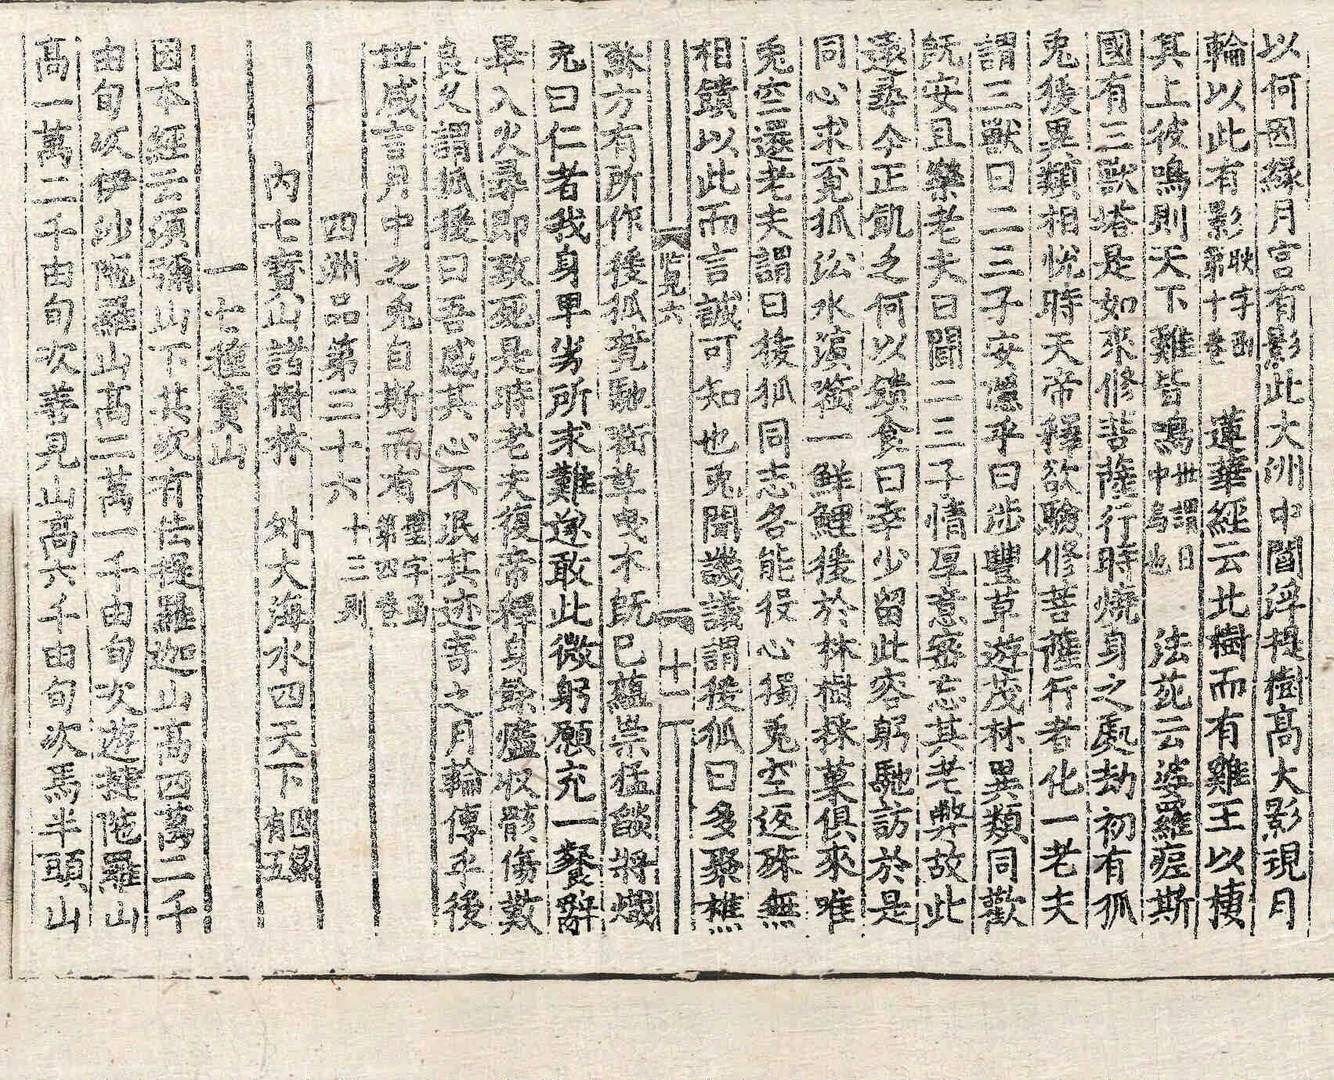 以何因緣月宮有影此大洲中閻浮提樹高大影現月
輪以此有影耿字函第十卷 蓮華經云北樹而有雞王以棲
其上彼鳴則天下雞皆鳴世謂日中烏也 法苑云婆羅痆斯
國有三獸塔是如來修菩薩行時燒身之處劫初有狐
兎後異類相悅時天帝釋欲驗修菩薩行者化一老夫
謂三獸曰二三子安隱乎曰涉豐草遊茂林異類同歡
旣安且樂老夫曰聞二三子情厚意密忘其老弊故此
遠尋今正飢乏何以饋食曰幸少留此容躬馳訪於是
同心求覓狐沿水濵銜一鮮鯉後於林樹採菓俱來唯
兎空還老夫謂曰後狐同志各能役心獨兎空返殊無
相饋以此而言誠可知也兎聞譏議謂後狐曰多聚樵
覧六 十一
蘇方有所作後狐競馳銜草曳木旣已蘊崇猛燄將熾
兎曰仁者我身卑劣所求難遂敢此微躬願充一餐辭
畢入火尋即致死是時老夫復帝釋身餘燼収骸傷歎
良久謂狐後曰吾感其心不泯其迹寄之月輪傳乎後
世咸言月中之兎自斯而有璧字函第四卷
四洲品第三十六 十三則
內七寶山諸樹林 外大海水四天下 四緣有五
一七種寶山
因本經云須彌山下其次有佉提羅迦山高四萬二千
由旬次伊沙陁羅山高二萬一千由旬次遊揵陁羅山
高一萬二千由旬次善見山高六千由旬次馬半頭山